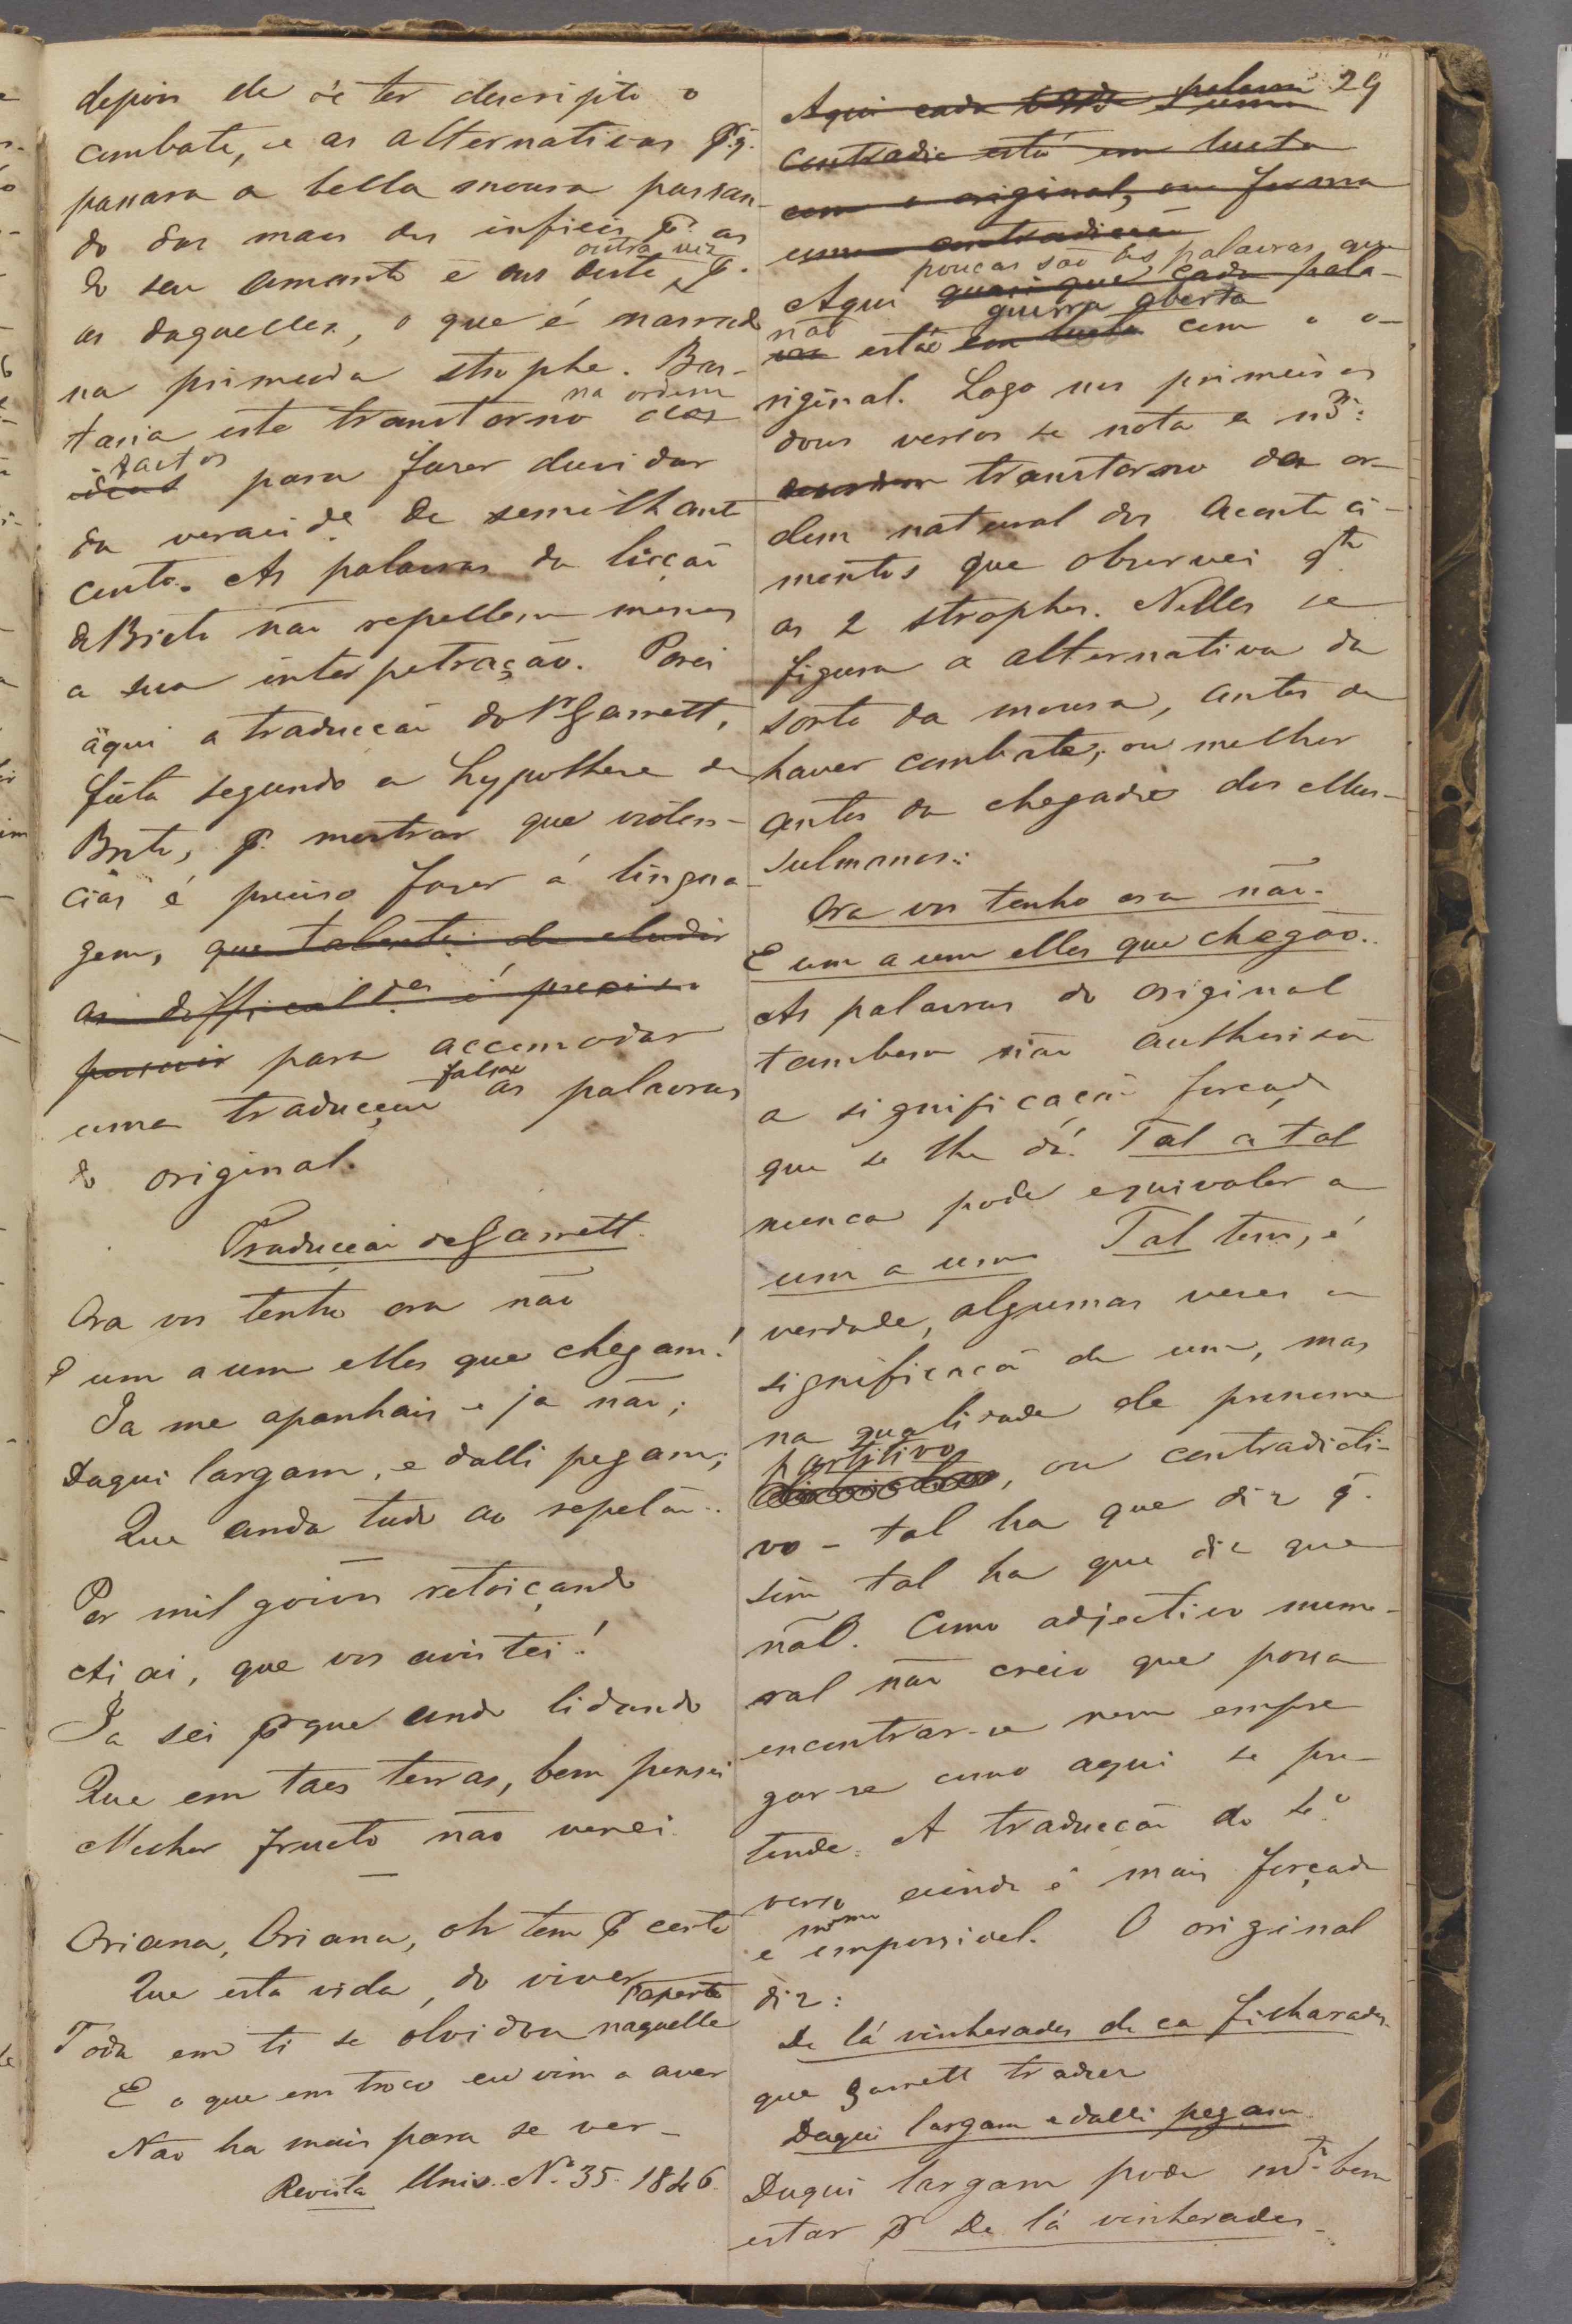 depois de se ter descripto o
combate, e as alternativas p. q.
passara a bella moura passan-
do das maos dos infieis p.ª as
do seu amante e das deste outra vez p.ª
as daquelles, o que é narrado
na primeira strophe. Bas-
taria este transtorno na ordem dos
factos para fazer duvidar
da veracid.e de semilhante
conto. As palavras da licção
de Brito não repellem menos
a sua interpetração. Porei
aqui a traducção do Sr Garrett,
feita segundo a hypothese de
Brito, p.ª mostrar que violen-
cias é preciso fazer á lingua-
gem, que talento de eludir
as difficuld.es é preciso
possuir para accomodar
uma traducçao falsa as palavras
do original.
Traducção de Garrett.
Ora vos tenho ora não
E um a um elles que chegam!
Ja me apanhais e ja não;
Daqui largam, e dalli pegam;
Que anda tudo ao repelão..
Por mil goivos retoiçando
Ai ai, que vos avistei!
Ja sei p.r que ando lidando
Que em taes terras, bem pensei
Melhor fructo não verei.
Oriana, Oriana, oh tem p.r certo
Que esta vida, do viver
Toda em ti se olvidou naquelle aperto
E o que em troco eu vim a aver
Não ha mais para se ver_
Revista Univ. N.º 35. 1846.
29
Aqui cada palavra
contradiz está em lucta
com o original, ou forma
uma contradicção
Aqui quasi que cada pala- poucas são as palavras que
não estão em lucta guerra aberta com o o-
riginal. Logo nos primeiros
dous versos se nota o m.mo
transtorno da or-
dem natural dos aconteci-
mentos que observei q.to
as 2 strophes. Nelles se
figura a alternativa da
sorte da moura, antes de
haver combate, ou melhor
antes da chegada dos Mus-
sulmanos:
Ora vos tenho ora não.
E um a um elles que chegão..
As palavras do original
tambem não authorisão
a significação forçada
que se lhe dá. Tal a tal
nunca pode equivaler a
um a um. Tal tem, é
verdade, algumas vezes a
significação de um, mas
na qualidade de pronome
partitivo, ou contradicti-
vo - tal ha que diz q.
sim tal ha que diz que
não. Como adjectivo nume-
ral não creio que possa
encontrar-se nem empre
gar-se como aqui se pre-
tende. A traducção do 4.º
verso ainda é mais forçada
e mesmo impossivel. O original
diz:
De lá vinherades de ca ficharades.
que Garrett traduz
Daqui largam e dalli pegam.
Daqui largam pode m.to bem
estar p.r De lá vinherades_